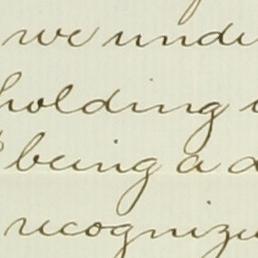 we unde
holding
being a
recognize